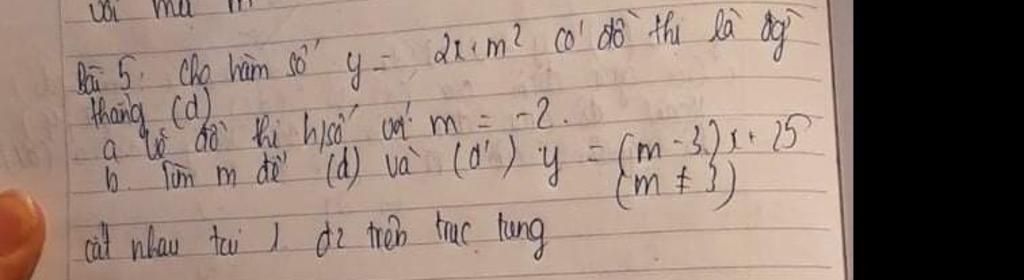 với mà m
Bài 5: Cho hàm số y = 2x + m² có đồ thị là đg
thẳng (d)
a vẽ đồ thị h/số với m = -2.
b. Tìm m để (d) và (d') y = (m - 3)x + 25
(m ≠ 3)
cắt nhau tại 1 đ2 trên trục tung